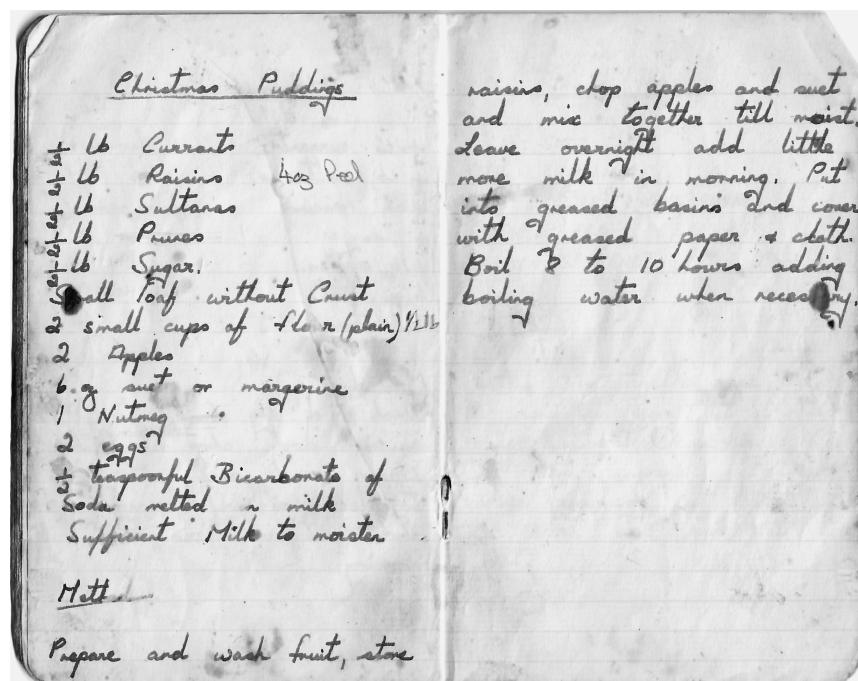 Christmas Puddings
½ lb Currants
½ lb Raisins 4oz Peel
½ lb Sultanas
½ lb Prunes
½ lb Sugar.
Small loaf without Crust
2 small cups of flour (plain) 1/2 lb
2 Apples
6.oz suet or margerine
1 Nutmeg
2 eggs
½ teaspoonful Bicarbonate of
Soda melted in milk
Sufficient Milk to moisten
Meth
Prepare and wash fruit, stone
raisins, chop apples and suet
and mix together till moist.
Leave overnight add little
more milk in morning. Put
into greased basins and cover
with greased paper & cloth.
Boil 8 to 10 hours adding
boiling water when necessary.